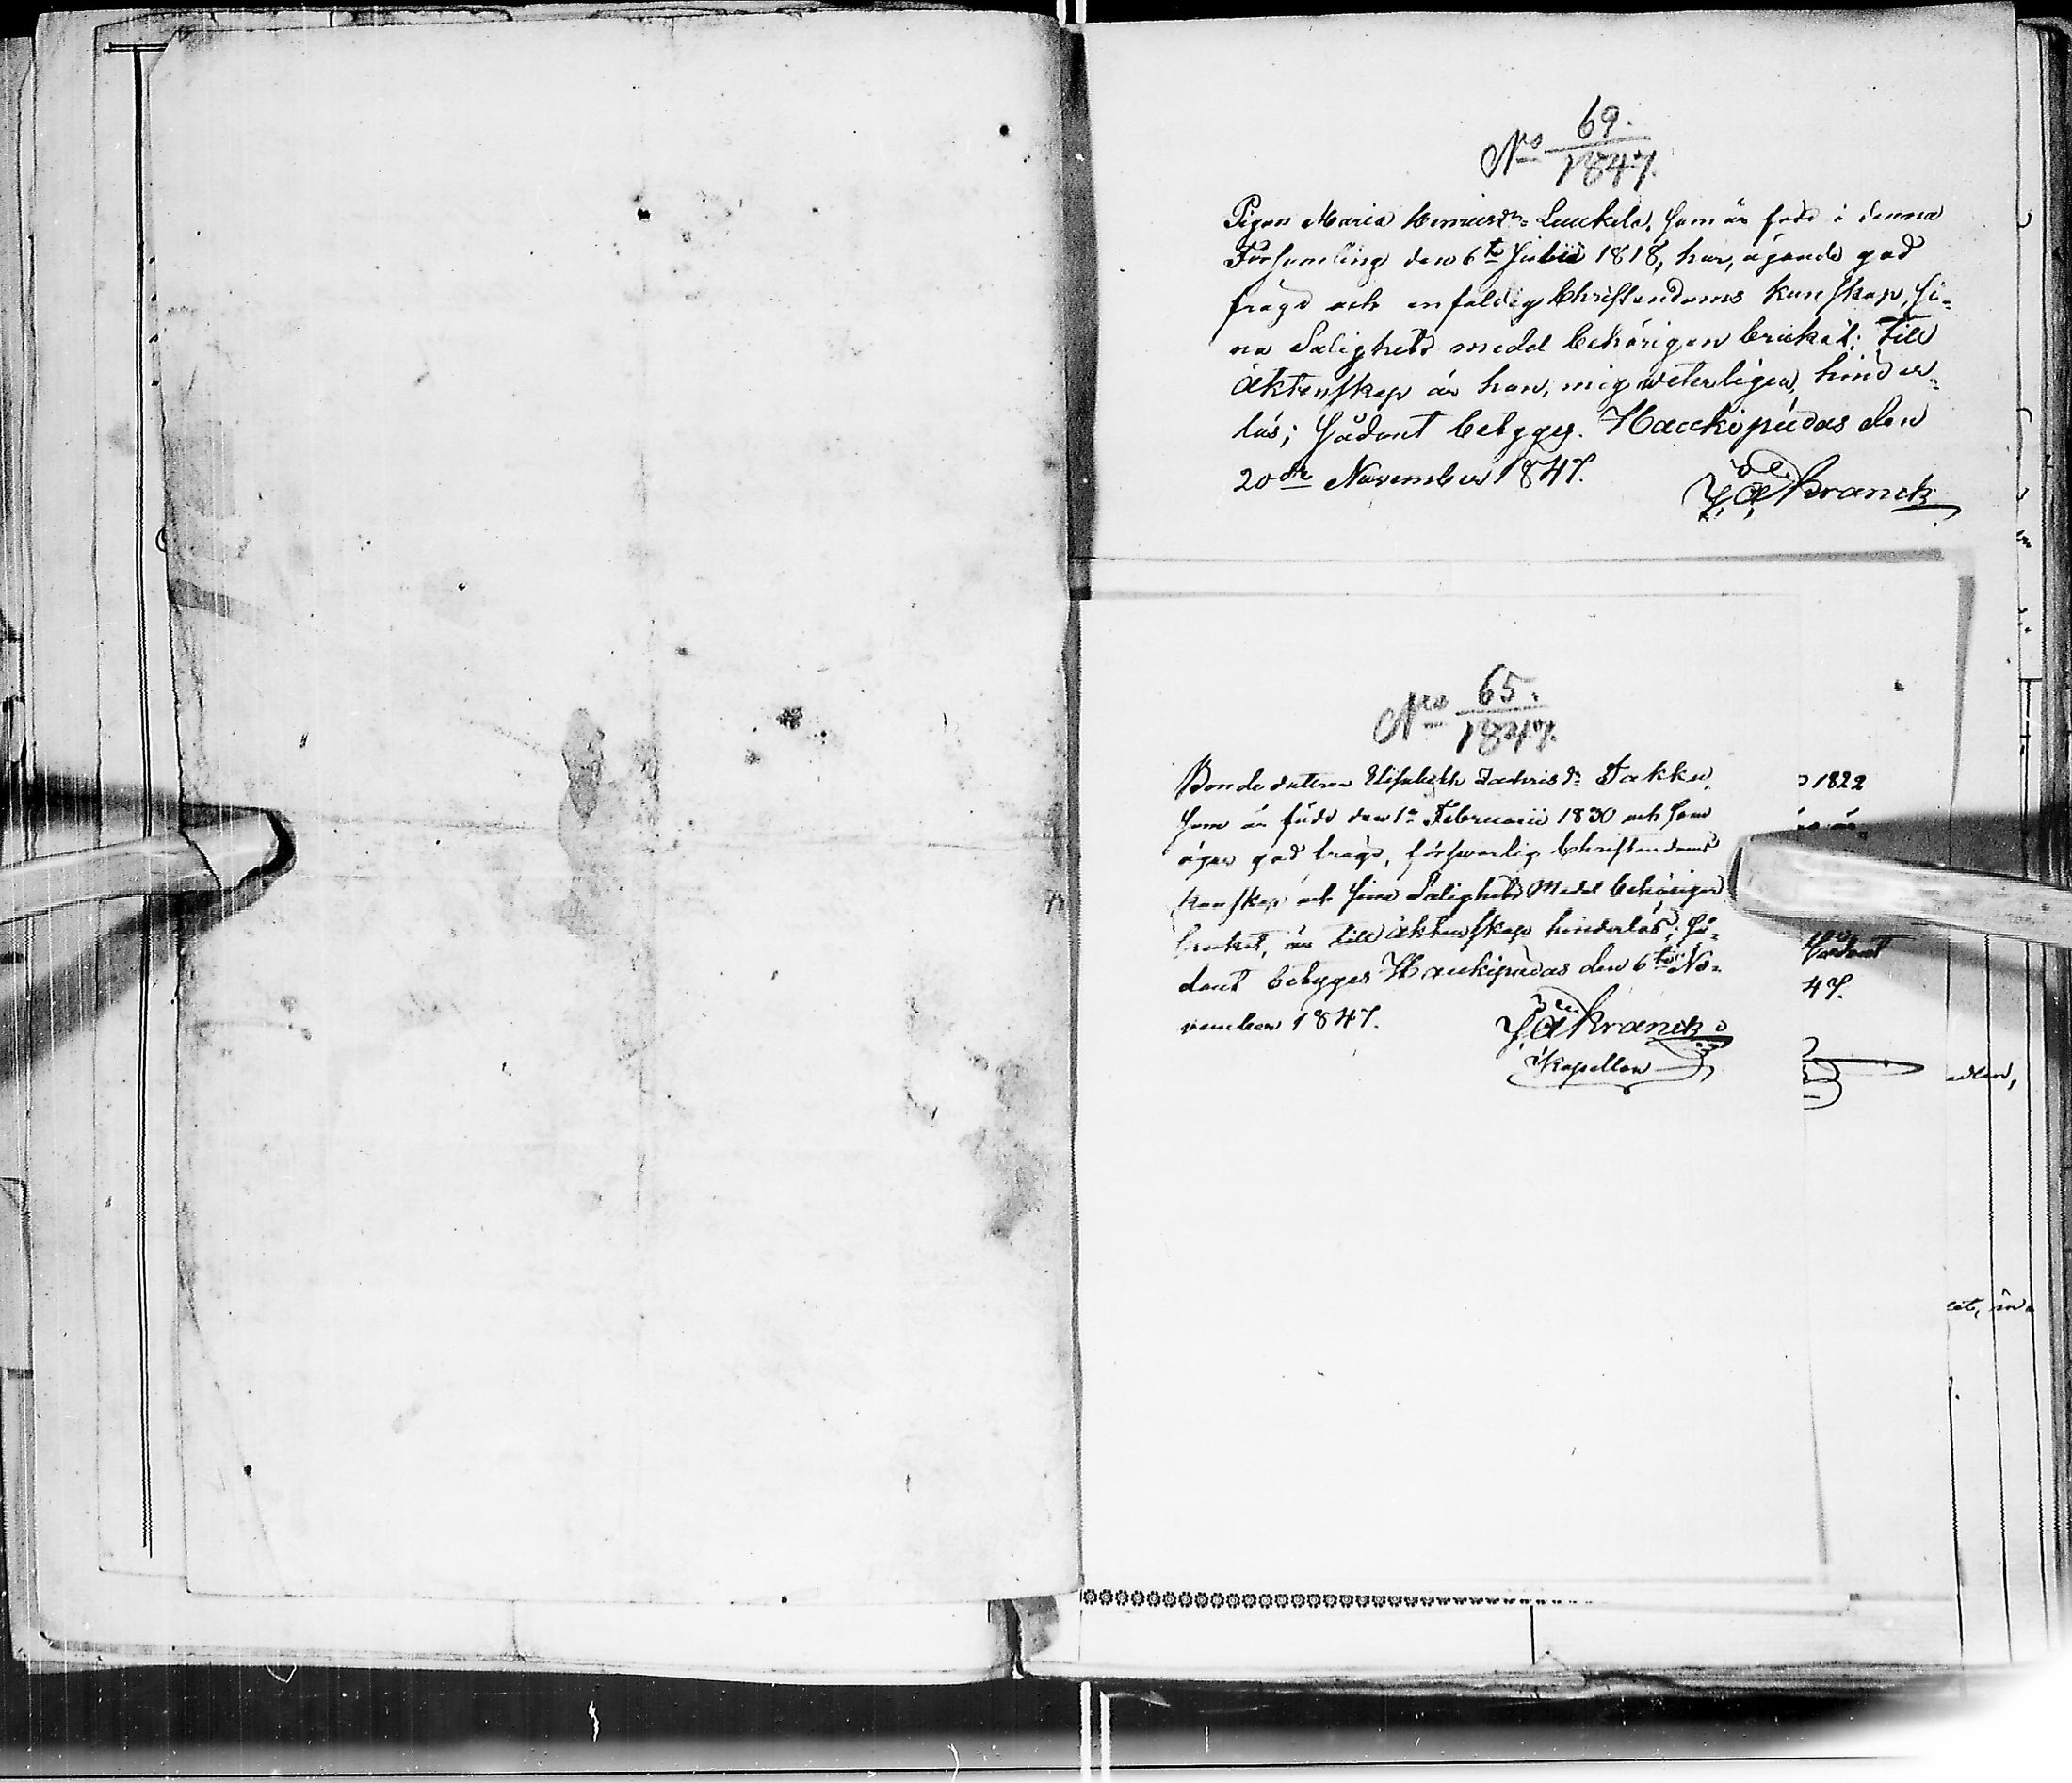 No 69.
1847.
Pigan Maria Henricsdr Luukela, som är född i denna
Församling den 6te Julii 1818, har, ägande god
frägd och enfaldig Christendoms kunskap, si-
na Salighets medel behörigen brukat; till
äktenskap är hon, mig veterligen, hinder-
lös; sådant betyges. Haukipudas den
20de November 1847.
J. A. Kranck
No 65.
1847.
Bondedottren Elisabeth Zachrisdr Takku,
som är född den 1a Februarii 1830 och som
äger god frägd, försvarlig Christendoms
kunskap och sina Salighets Medel behörigen
brukat, är till äktenskap hinderlös; så-
dant betyges Haukipudas den 6te No-
vember 1847.
J. A. Kranck
Kapellan
1822
47.